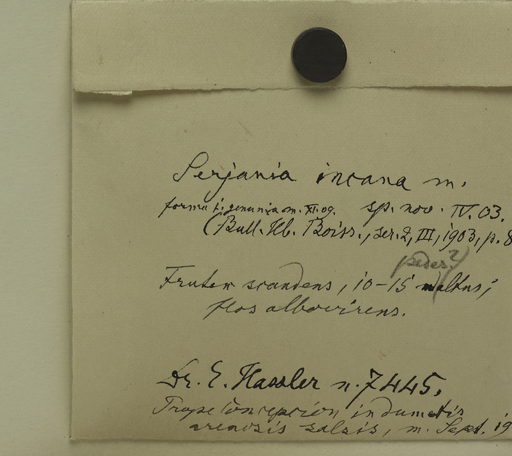 Serjania incana m.
forma i. genuina m. XI. 09. sp. nov. IV. 03.
(Bull. Hb. Boiss., ser. 2, III, 1903, p. 8
pedes?
Frutex scandens, 10-15 m altus;
flos albovirens.
Dr. E. Hassler n. 7445.
Prope Concepcion in dumetis
arenosis salsis, m. Sept. 19